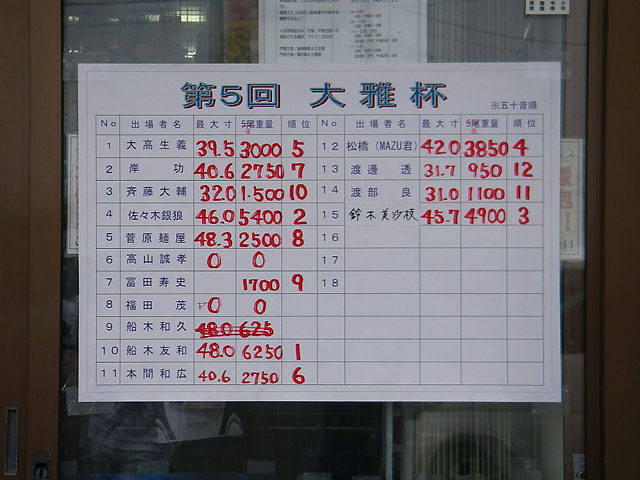 第5回 大雅杯
※五十音順
No 出場者名 最大寸 5尾重量 順位 No 出場者名 最大寸 5尾重量 順位
1 大高生義 39.5 3000 5 12 松橋(MAZU君) 42.0 3850 4
2 岸 功 40.6 2750 7 13 渡邊 透 31.7 950 12
3 斉藤大輔 32.0 1.500 10 14 渡部 良 31.0 1100 11
4 佐々木銀狼 46.0 5400 2 15 鈴木美沙枝 45.7 4900 3
5 菅原麺屋 48.3 2500 8 16
6 高山誠孝 0 0 17
7 富田寿史 1700 9 18
8 福田 茂 0 0
9 船木和久 48.0 625
10 船木友和 48.0 6250 1
11 本間和広 40.6 2750 6